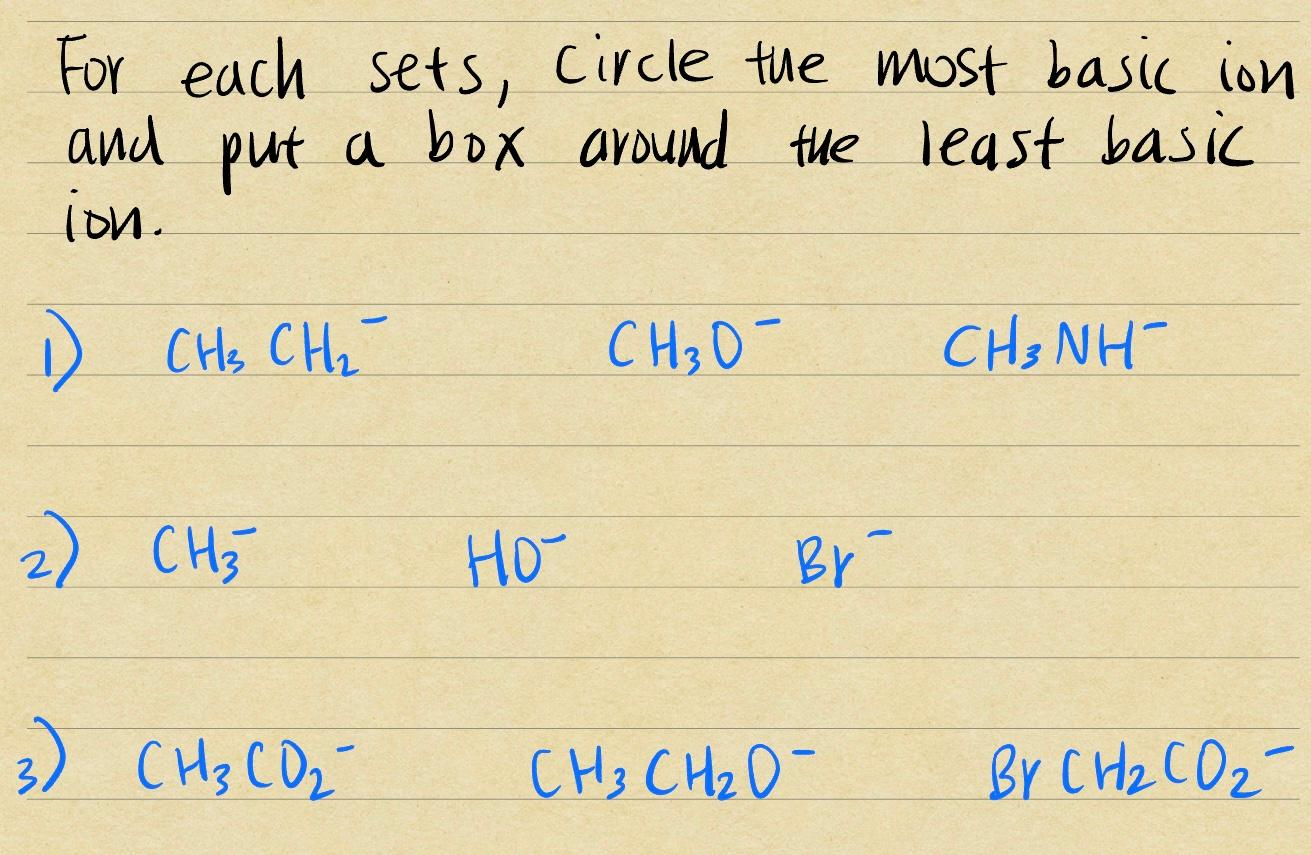 For each sets, circle the most basic ion
and put a box around the least basic
ion.
1) CH₃CH₂⁻ CH₃O⁻ CH₃NH⁻
2) CH₃⁻ HO⁻ Br⁻
3) CH₃CO₂⁻ CH₃CH₂O⁻ BrCH₂CO₂⁻